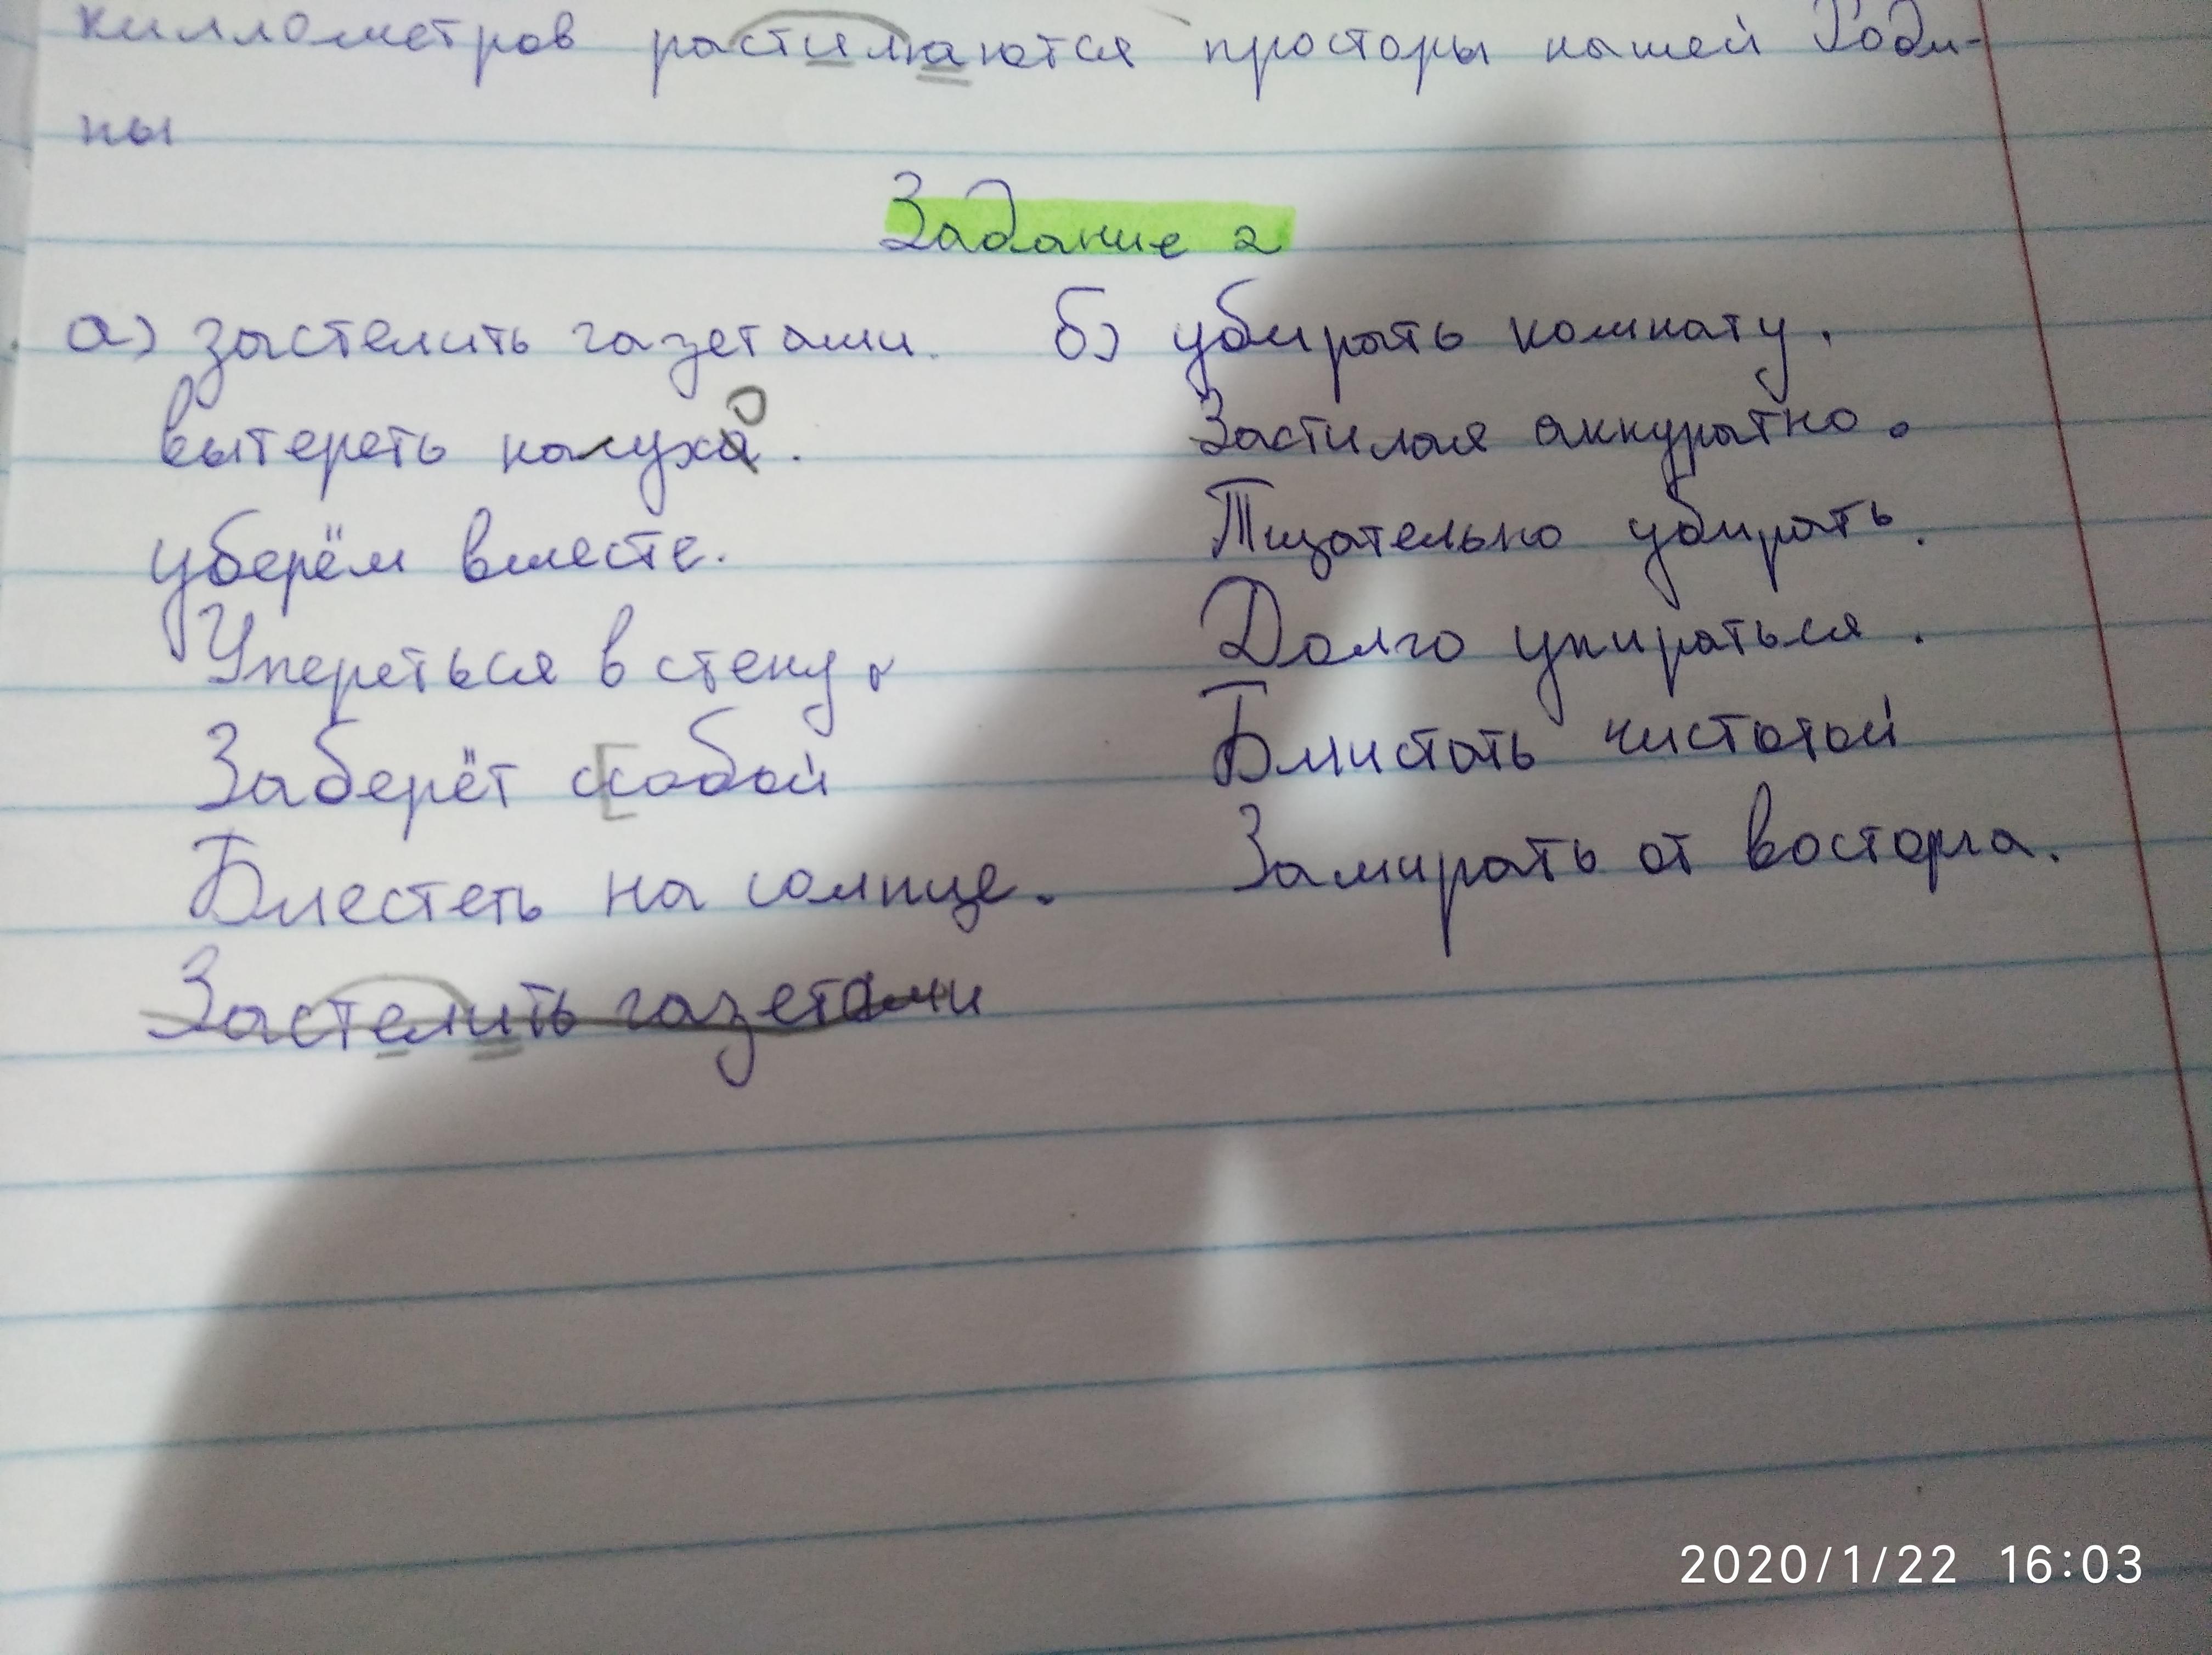 киллометров растилаются просторы нашей Роди-
ны
Задание 2
а) застелить газетами. б) убирать комнату.
вытереть насухо. Застилая аккуратно.
уберём вместе. Тщательно убирать.
Упереться в стену. Долго упираться.
Заберёт с собой Блистать чистотой
Блестеть на солнце. Замирать от восторга.
Застелить газетами
2020/1/22 16:03